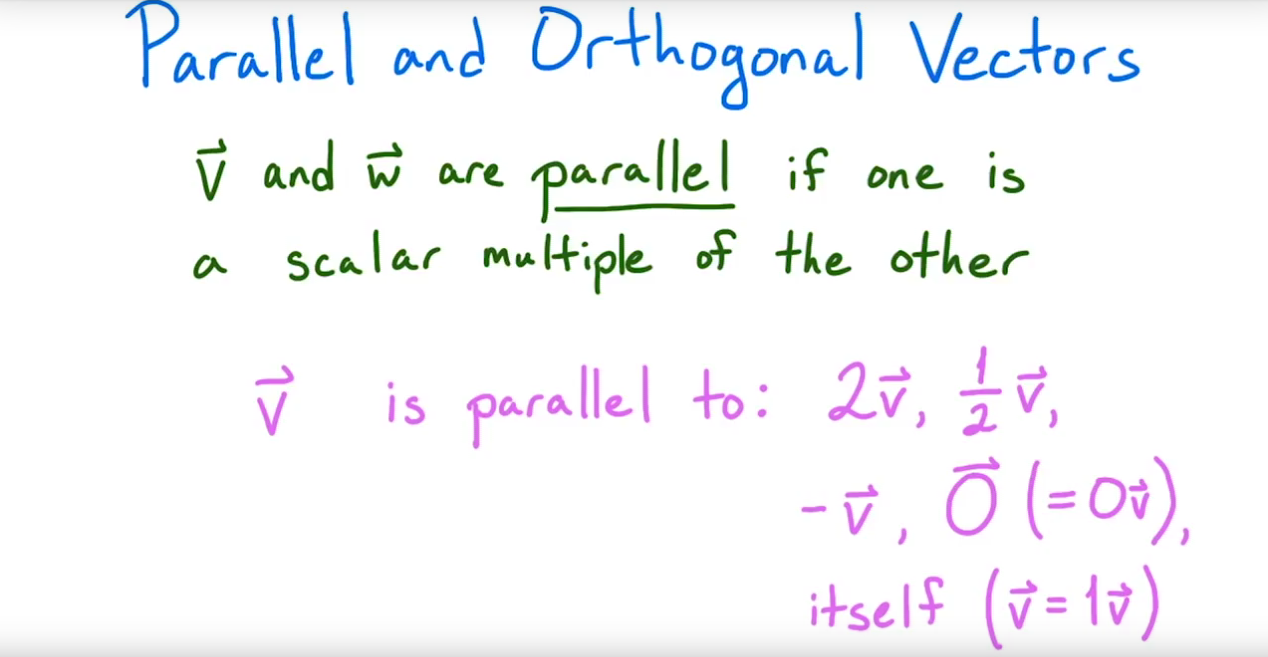 Parallel and Orthogonal Vectors
v⃗ and w⃗ are parallel if one is
a scalar multiple of the other
v⃗ is parallel to: 2v⃗, ½v⃗,
-v⃗, O⃗ (=0v⃗),
itself (v⃗=1v⃗)